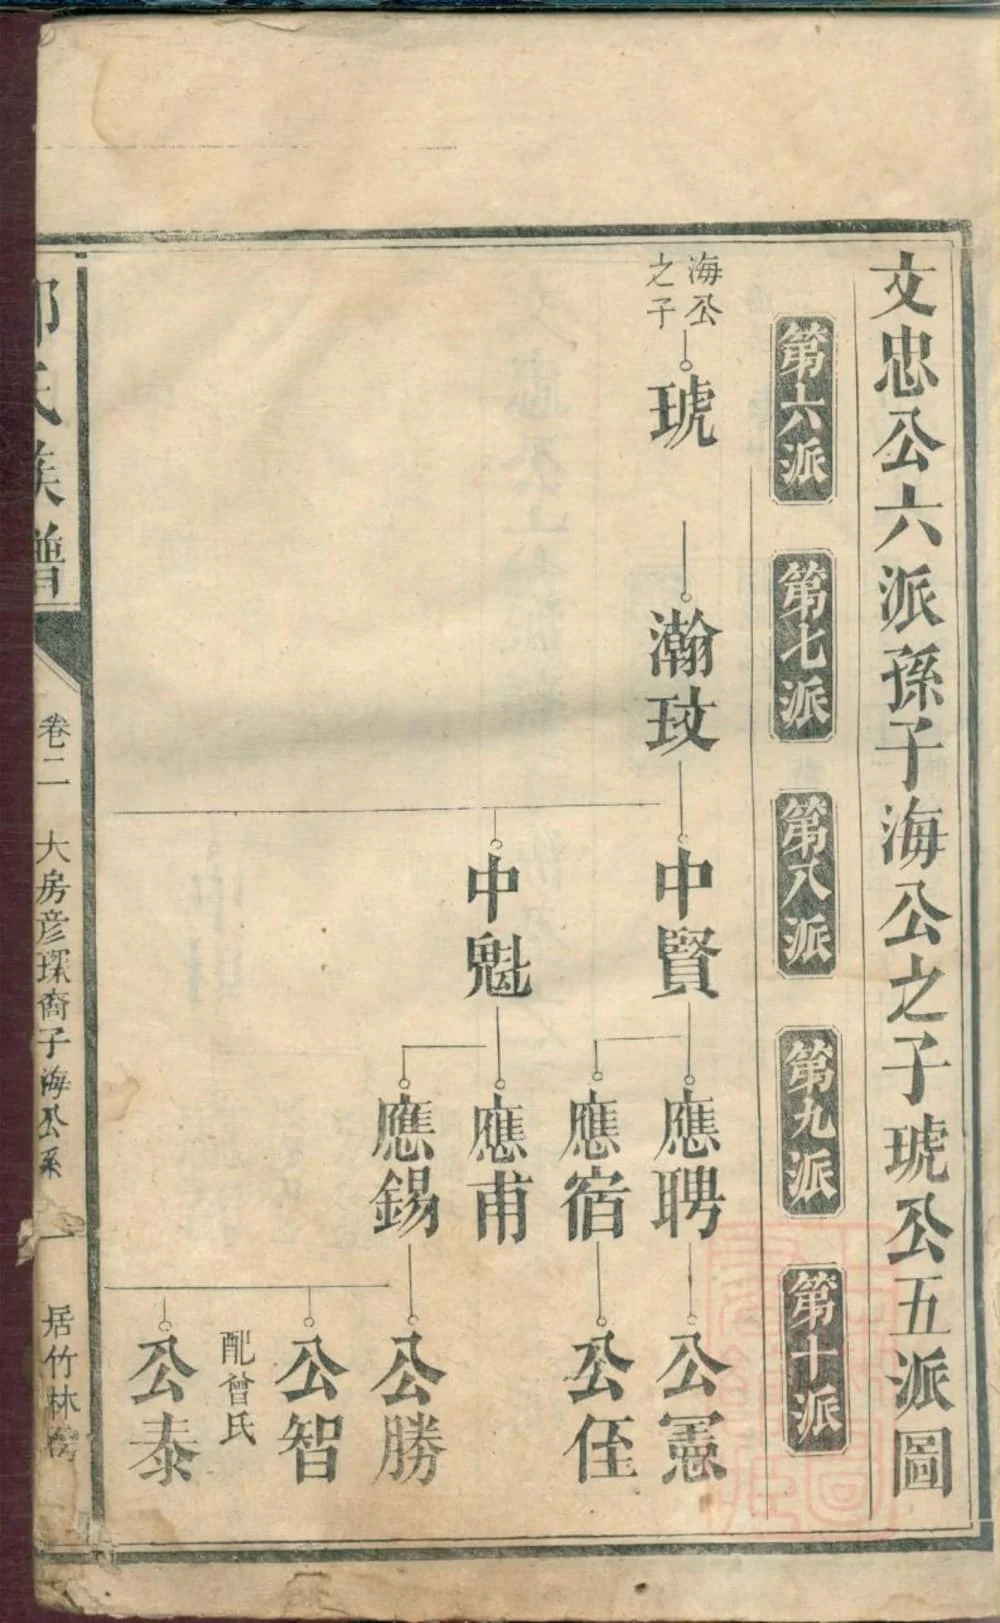 文忠公六派孫子海公之子琥公五派圖
第六派
第七派
第八派
第九派
第十派
海公
之子
琥
瀚玟
中賢
應聘
公憲
應宿
公侄
中魁
應甫
應錫
公勝
公智
配曾氏
公泰
氏族譜
卷二
大房彦琛裔子海公系
居竹林